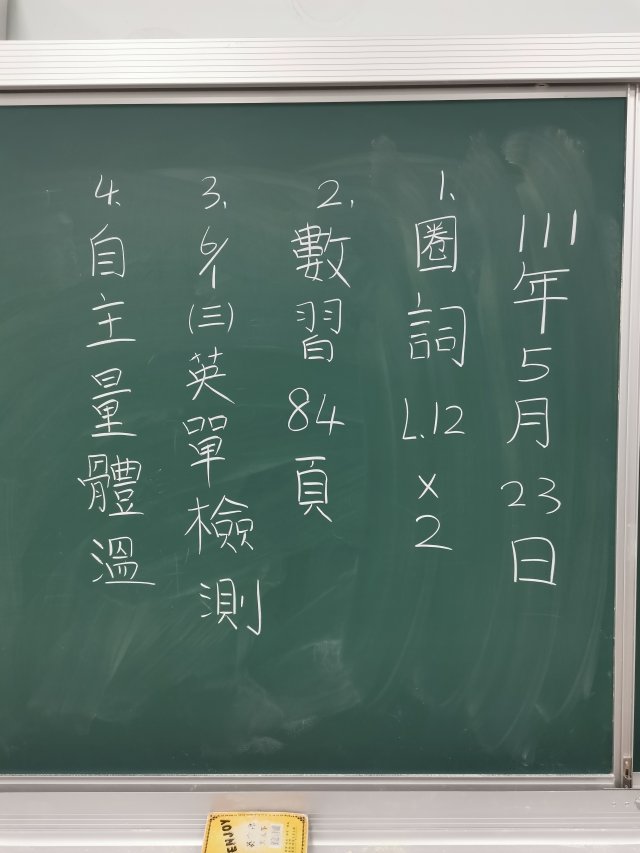 111年5月23日
1.圈詞L.12×2
2.數習84頁
3.6/1(三)英單檢測
4.自主量體溫
ENJOY